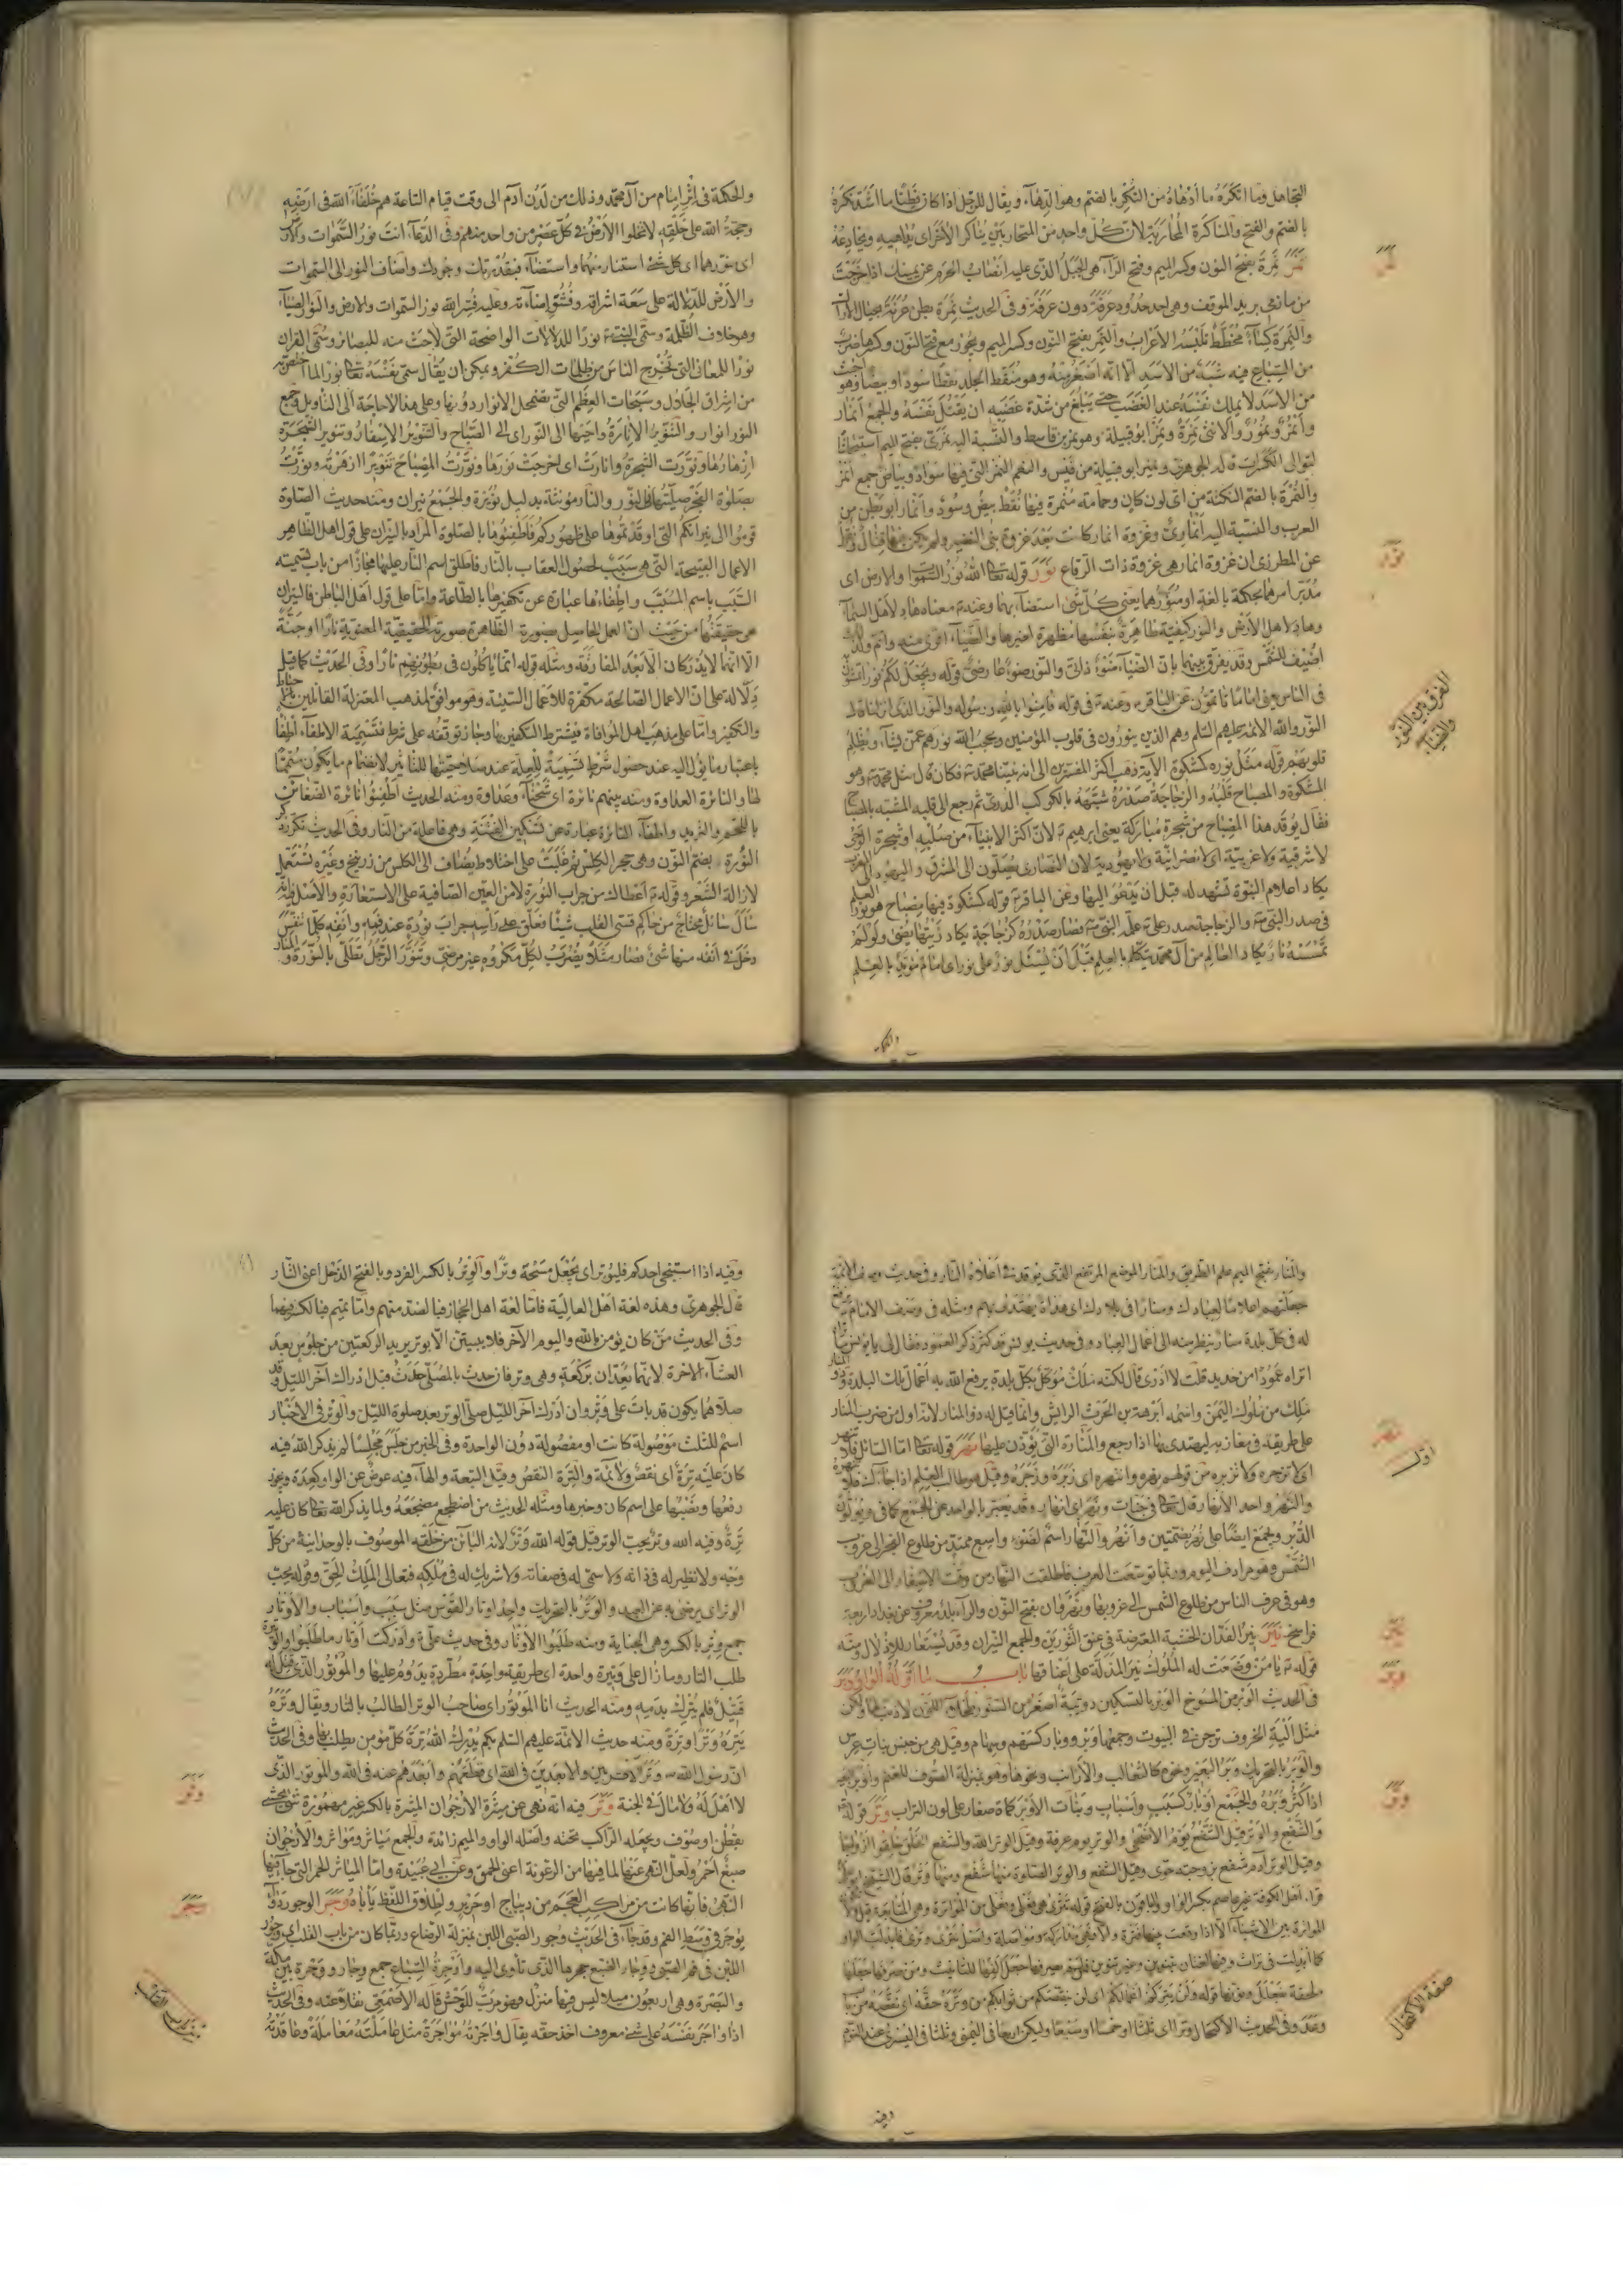 التجاهل وما انكره ما ادهاه من النكر بالضم وهو الدهاء ويقال للرجل اذا كان فطنا ما اشد نكره
بالضم والفتح والمناكرة المحاربة لان كل واحد من المتحاربين يناكر الاخر اى يداهيه ويخادعه
نمر نمرة بفتح النون وكسر الميم وفتح الراء هى الجبل الذى عليه انصاب الحرم عن يمينك اذا خرجت
من مازمى يريد الموقف وهى احد حدود عرفة دون عرفة وفى الحديث نمرة بطن عرنة بحيال الاراك
والنمرة كساء مخطط تلبسه الاعراب والنمر بفتح النون وكسر الميم ويجوز مع فتح النون وكسرها ضرب
من السباع فيه شبه من الاسد الا انه اصغر منه وهو منقط الجلد نقطا سودا او بيضا وهو اخبث
من الاسد لا يملك نفسه عند الغضب حتى يبلغ من شدة غضبه ان يقتل نفسه والجمع انمار
وانمر ونمور والانثى نمرة ونمر ابو قبيلة وهو نمر بن قاسط والنسبة اليه نمرى بفتح الميم استيحاشا
لتوالى الكسرات قاله الجوهرى ونمير ابو قبيلة من قيس والنعم النمر التى فيها سواد وبياض جمع انمر
والنمرة بالضم النكتة من اى لون كان وحمامة منمرة فيها نقط بيض وسود وانمار ابو بطن من
العرب والنسبة اليه انمارى وغزوة انمار كانت بعد غزوة بنى النضير ولم يكن فيها قتال ونقل
عن المطرزى ان غزوة انمار هى غزوة ذات الرقاع نور قوله تعالى الله نور السموات والارض اى
مدبر امرهما بحكمة بالغة او منورهما يعنى كل شئ استضاء بهما وعنه ع معناه هاد لاهل السماء
وهاد لاهل الارض والنور كيفية ظاهرة بنفسها مظهرة لغيرها والضياء اقوى منه واتم ولذلك
اضيف للشمس وقد يفرق بينهما بان الضياء ضوء ذاتى والنور ضوء عارضى قوله ويجعل لكم نورا تمشون به
فى الناس يعنى اماما تاتمون عن الباقر ع وعنه ع فى قوله فامنوا بالله ورسوله والنور الذى انزلنا قال
النور والله الائمة عليهم السلم وهم الذين ينورون فى قلوب المؤمنين ويحجب الله نورهم عمن يشاء ويظلم
قلوبهم قوله مثل نوره كمشكوة الآية ذهب اكثر المفسرين الى انه نبينا محمد ص فكان قال مثل محمد ص وهو
المشكوة والمصباح قلبه والزجاجة صدره شبهه بالكوكب الدرى ثم رجع الى قلبه المشبه بالمصباح
فقال يوقد هذا المصباح من شجرة مباركة يعنى ابرهيم ع لان اكثر الانبياء من صلبه او شجرة الوحى
لا شرقية ولا غربية اى لا نصرانية ولا يهودية لان النصارى يصلون الى المشرق واليهود الى المغرب
يكاد اعلام النبوة تشهد له قبل ان يدعو اليها وعن الباقر ع قوله كمشكوة فيها مصباح هو نور العلم
فى صدر النبى ص والزجاجة صدر على ع علمه النبى ص فصار صدره كزجاجة يكاد زيتها يضئ ولو لم
تمسسه نار يكاد العالم من آل محمد يتكلم بالعلم قبل ان يسئل نور على نور اى امام مؤيد بالعلم
والحكمة
نمر
نور
الفرق بين النور
والضياء
والحكمة فى اثر امام من آل محمد وذلك من لدن آدم الى وقت قيام الساعة هم خلفاء الله فى ارضه
وحجة الله على خلقه لا تخلوا الارض فى كل عصر من واحد منهم وفى الدعاء انت نور السموات والارض
اى منورهما اى كل شئ استنار منهما واستضاء فبقدرتك وجودك واضاف النور الى السموات
والارض للدلالة على سعة اشراقه وفشو اضاءته وعليه فسر الله نور السموات والارض والنور الضياء
وهو خلاف الظلمة وسمى النبى ص نورا للدلالات الواضحة التى لاحت منه للبصائر وسمى القرآن
نورا للمعانى التى تخرج الناس من ظلمات الكفر ويمكن ان يقال سمى نفسه تعالى نورا لما اختص به
من اشراق الجلال وسبحات العظمة التى تضمحل الانوار دونها وعلى هذا لا حاجة الى التاويل وجمع
النور انوار والتنوير الانارة واحتيها الى النوراى الى الصباح والتنوير الاسفار وتنوير الشجرة
ازهارها ونورت الشجرة وانارت اى اخرجت نورها ونورت المصباح تنويرا ازهرته ونورت
بصلوة الفجر صليتها فى النور والنار مؤنثة بدليل نويرة والجمع نيران ومنه حديث الصلوة
قوموا الى نيرانكم التى اوقدتموها على ظهوركم فاطفئوها بالصلوة المراد بالنيران على قول اهل الظاهر
الاعمال القبيحة التى هى سبب لحصول العقاب بالنار فاطلق اسم النار عليها مجازا من باب تسمية
السبب باسم المسبب واطفاءها عبارة عن تكفيرها بالطاعة واما على قول اهل الباطن فالنيران
هى حقيقتها من حيث ان العمل الحاصل بصورته الظاهرة صورته الحقيقية المعنوية نارا او جنة
الا انها لا يدركان الا بعد المفارقة ومثله قوله انما ياكلون فى بطونهم نارا وفى الحديث كما قيل
دلالة على ان الاعمال الصالحة مكفرة للاعمال السيئة وهو موافق لمذهب المعتزلة القائلين بالاحباط
والتكفير واما على مذهب اهل الموافاة فيشترط التكفير بها وجاز توقفه على شرط فتسمية الاطفاء اطفاء
باعتبار ما يؤل اليه عند حصول شرطه تسمية للعلة عند صلاحيتها للتاثير لانضمام ما يكون متمما
لها والنائرة العداوة ومنه بينهم نائرة اى شحناء وعداوة ومنه الحديث اطفئوا نائرة الضغائن
باللحم والثريد واطفاء النائرة عبارة عن تسكين الفتنة وهو فاعلة من النار وفى الحديث تكرر ذكر
النورة بضم النون وهى حجر الكلس ثم غلبت على اخلاط يضاف الى الكلس من زرنيخ وغيره تستعمل
لازالة الشعر وقوله ع اعطاك من جراب النورة لا من العين الصافية على الاستعارة والاصل فيه انه
سأل سائل محتاج من حاكم قسى القلب شيئا فعلق على راسه جراب نورة عند فمه وانفه كلما تنفس
دخل فى انفه منها شئ فصار مثلا يضرب لكل مكروه غير مرضى وتنور الرجل تطلى بالنورة والمنار
والمنار بفتح الميم علم الطريق والمنار الموضع المرتفع الذى يوقد فى اعلاه النار وفى حديث وصف الائمة
جعلتهم اعلاما لعبادك ومنارا فى بلادك اى هداة يهتدى بهم ومثله فى وصف الامام يرفع
له فى كل بلدة منار ينظر منه الى اعمال العباد وفى حديث يونس قد كثر ذكر العمود فقال لى يا يونس ما
تراه اتراه عمودا من حديد قلت لا ادرى قال لكنه ملك مؤكل بكل بلدة يرفع الله به اعمال تلك البلدة وذو المنار
ملك من ملوك اليمن واسمه ابرهة بن الحرث الرايش وانما قيل له ذو المنار لانه اول من ضرب المنار
على طريقه فى مغازيه ليهتدى بها اذا رجع والمنارة التى يؤذن عليها نهر قوله تعالى اما السائل فلا تنهر
اى لا تزجره ولا تزبره من قولهم نهره وانتهره اى زبره وزجره وقيل هو طالب العلم اذا جاءك فلا تنهره
والنهر واحد الانهار قال تعالى فى جنات ونهر اى انهار وقد يعبر بالواحد عن الجمع كما فى ويولون
الدبر ويجمع ايضا على نهر بضمتين وانهر والنهار اسم لضوء واسع ممتد من طلوع الفجر الى غروب
الشمس وهو مرادف اليوم وربما توسعت العرب فاطلقت النهار من وقت الاسفار الى الغروب
وهو فى عرف الناس من طلوع الشمس الى غروبها ونهروان بفتح النون والراء بلد معروف عن بغداد اربعة
فراسخ نير نير الفدان الخشبة المعترضة فى عنق الثورين والجمع النيران وقد يستعار للاذلال ومنه
قوله ع يا من وضعت له الملوك نير المذلة على اعناقها باب ما اوله الواو وبر
فى الحديث الوبر من المسوخ الوبر بالتسكين دويبة اصغر من السنور طحلاء اللون لا ذنب لها ولكن
مثل الية الخروف ترجن فى البيوت وجمعها وبر ووبار كسهم وسهام وقيل هى من جنس بنات عرس
والوبر بالتحريك وبر البعير ونحوه كالثعالب والارانب ونحوها وهو بمنزلة الصوف للغنم واوبر البعير
اذا كثر وبره والجمع اوبار كسبب واسباب وبنات الاوبر كماة صغار على لون التراب وتر قوله تعالى
والشفع والوتر قيل الشفع يوم الاضحى والوتر يوم عرفة وقيل الوتر الله والشفع الخلق خلقوا ازواجا
وقيل الوتر آدم شفع بزوجته حوى وقيل الشفع والوتر الصلوة منها شفع ومنها وتر قال الشيخ ابو على
قرأ اهل الكوفة غير عاصم بكسر الواو والباقون بالفتح قوله تترى هى فعلى وفعلى من المواترة وهى المتابعة قيل ولا
المواترة بين الاشياء الا اذا وقعت بينهما فترة والا فهى مداركة ومواصلة واصل تترى وترى فابدلت الواو
كما ابدلت فى تراث وفيها لغتان بتنوين وغير تنوين فمن لم يصرفها جعل الفها للتانيث ومن صرفها جعلها
ملحقة بفعلل ومنها قوله ولن يتركم اعمالكم اى لن ينقصكم من ثوابكم من وتره حقه اى نقصه من باب
وعد وفى الحديث الاكتحال وترا اى ثلثا او خمسا او سبعا وليكن اربعا فى اليمنى وثلثا فى اليسرى عند النوم
وفيه
نهر
نير
وبر
وتر
صفة الاكتحال
وفيه اذا استنجى احدكم فليوتر اى يجعل مسحه وترا والوتر بالكسر الفرد وبالفتح الذحل اعنى الثار
قال الجوهرى وهذه لغة اهل العالية فاما لغة اهل الحجاز فبالضد منهم واما تميم فبالكسر فيهما
وفى الحديث من كان يؤمن بالله واليوم الآخر فلا يبيتن الا بوتر يريد الركعتين من جلوس بعد
العشاء الاخرة لانهما يعدان بركعة وهى وتر فان حدث بالمصلى حدث قبل ادراك آخر الليل وقد
صلاهما يكون قد بات على وتر وان ادرك آخر الليل صلى الوتر بعد صلوة الليل والوتر فى الاخبار
اسم للثلث موصولة كانت او مفصولة دون الواحدة وفى الخبر من جلس مجلسا لم يذكر الله فيه
كان عليه ترة اى نقص ولائمة والترة النقص وقيل التبعة والهاء فيه عوض عن الواو كعدة ويجوز
رفعها ونصبها على اسم كان وخبرها ومثله الحديث من اضطجع مضجعه ولما يذكر الله تعالى كان عليه
ترة وفيه الله وتر يحب الوتر قيل قوله الله وتر لانه البائن من خلقه الموصوف بالوحدانية من كل
وجه ولا نظير له فى ذاته ولا سمى له فى صفاته ولا شريك له فى ملكه فتعالى الملك الحق وقوله يحب
الوتر اى يرضى به عن العبد والوتر بالتحريك واحد اوتار القوس مثل سبب واسباب والاوتار
جمع وتر بالكسر وهى الجناية ومنه طلبوا الاوتار وفى حديث على ع وادركت اوتار ما طلبوا والوتيرة
طلب الثار وما زال على وتيرة واحدة اى طريقة واحدة مطردة يدوم عليها والموتور الذى قتل له
قتيل فلم يدرك بدمه ومنه الحديث انا الموتور اى صاحب الوتر الطالب بالثار ويقال وتره
يتره وترا وترة ومنه حديث الائمة عليهم السلم بكم يدرك الله ترة كل مؤمن يطلب بها وفى الحديث
ان رسول الله ص وتر الاقربين والابعدين فى الله اى قطعهم وابعدهم عنه فى الله والموتور الذى
لا اهل له ولا مال فى الجنة وثر فيه انه نهى عن ميثرة الارجوان الميثرة بالكسر غير مهموزة شئ يحشى
بقطن او صوف ويجعله الراكب تحته واصله الواو والميم زائدة والجمع مياثر ومواثر والارجوان
صبغ احمر ولعل النهى عنها لما فيها من الرعونة اعنى الحمق وعن ابى عبيدة واما المياثر الحمر التى جاء فيها
النهى فانها كانت من مراكب العجم من ديباج او حرير واطلاق اللفظ ياباه وجر الوجور دواء
يوجر فى وسط الفم وقد جاء فى الحديث وجور الصبى اللبن بمنزلة الرضاع وربما كان من باب القلب اى وجر
اللبن فى فم الصبى ووجار الضبع جحرها الذى تاوى اليه واوجرة السباع جمع وجار ووجرة بين مكة
والبصرة وهى اربعون ميلا ليس فيها منزل فهو مرب للوحش قاله الاصمعى نقلا عنه وفى الحديث
اذا واجر نفسه على شئ معروف اخذ حقه يقال واجرته مواجرة مثل عاملته معاملة وعاقدته
وثر
وجر